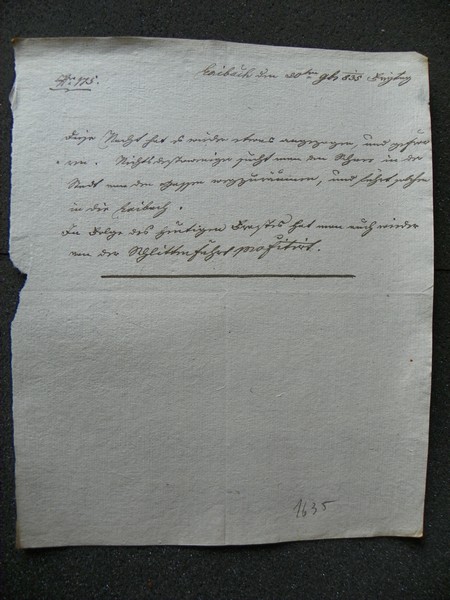 No 175.
Laibach den 20ten 9br 835 Freytag
Diese Nacht hat es wieder etwas angezogen, und gefro-
ren. Nichtsdestoweniger sucht man den Schnee in der
Stadt von den Gassen wegzuräumen, und führt solchen
in die Laibach.
In Folge des heutigen Frostes hat man auch wieder
von der Schlittenfahrt profitirt.
1835